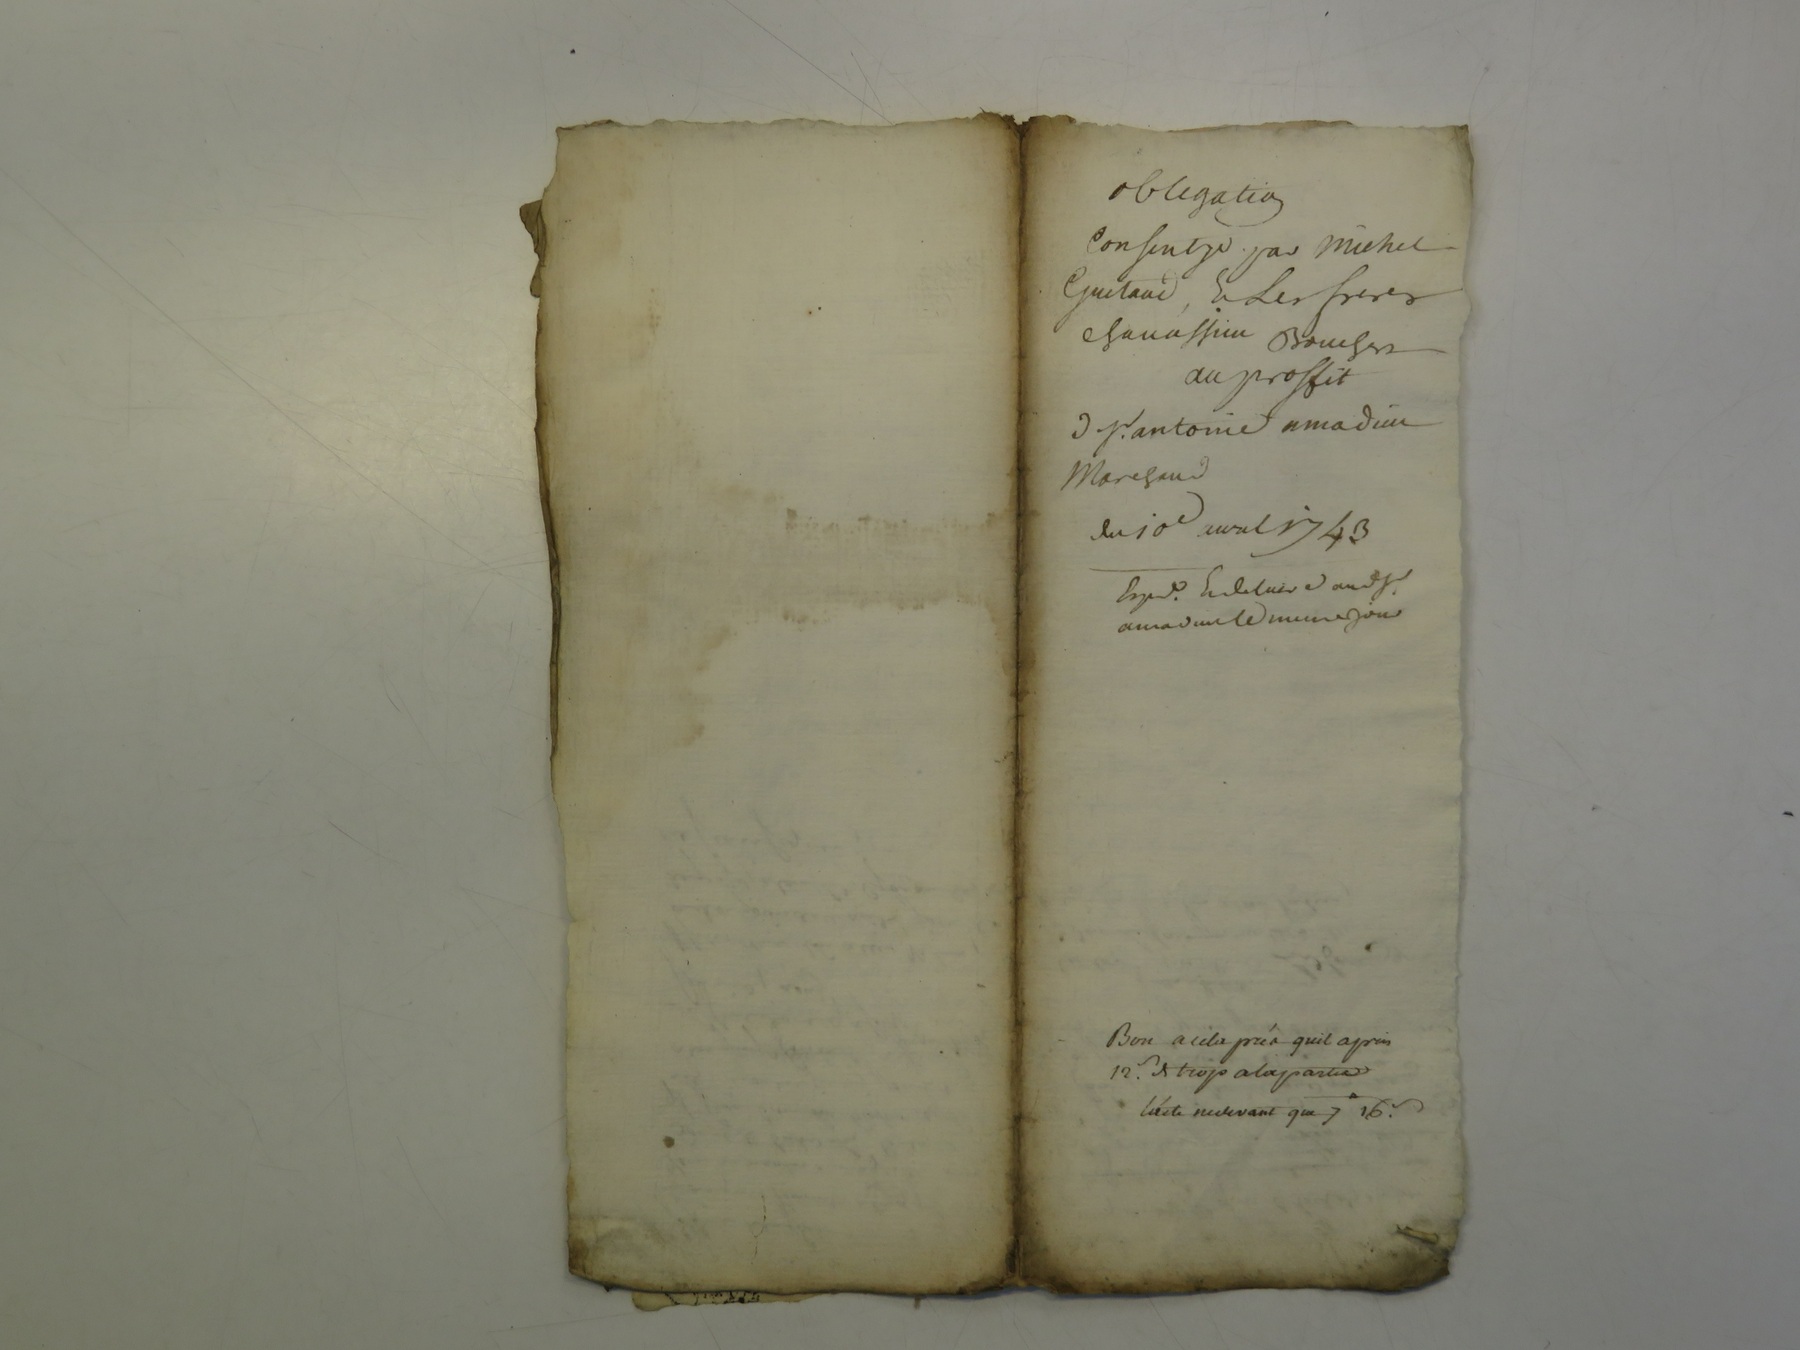 obligation
Consentye par Michel
Guitard, & Les freres
chanassieu Bouchers
au proffit
d sr. antoine amadieu
Marchand
du 10e avril 1743
Exped. & delivré audt sr.
amadieu le meme jour
Bon a cela prés quil a pris
12 s. de trop a la partie
l'acte ne devant que 7 lt 16 s.